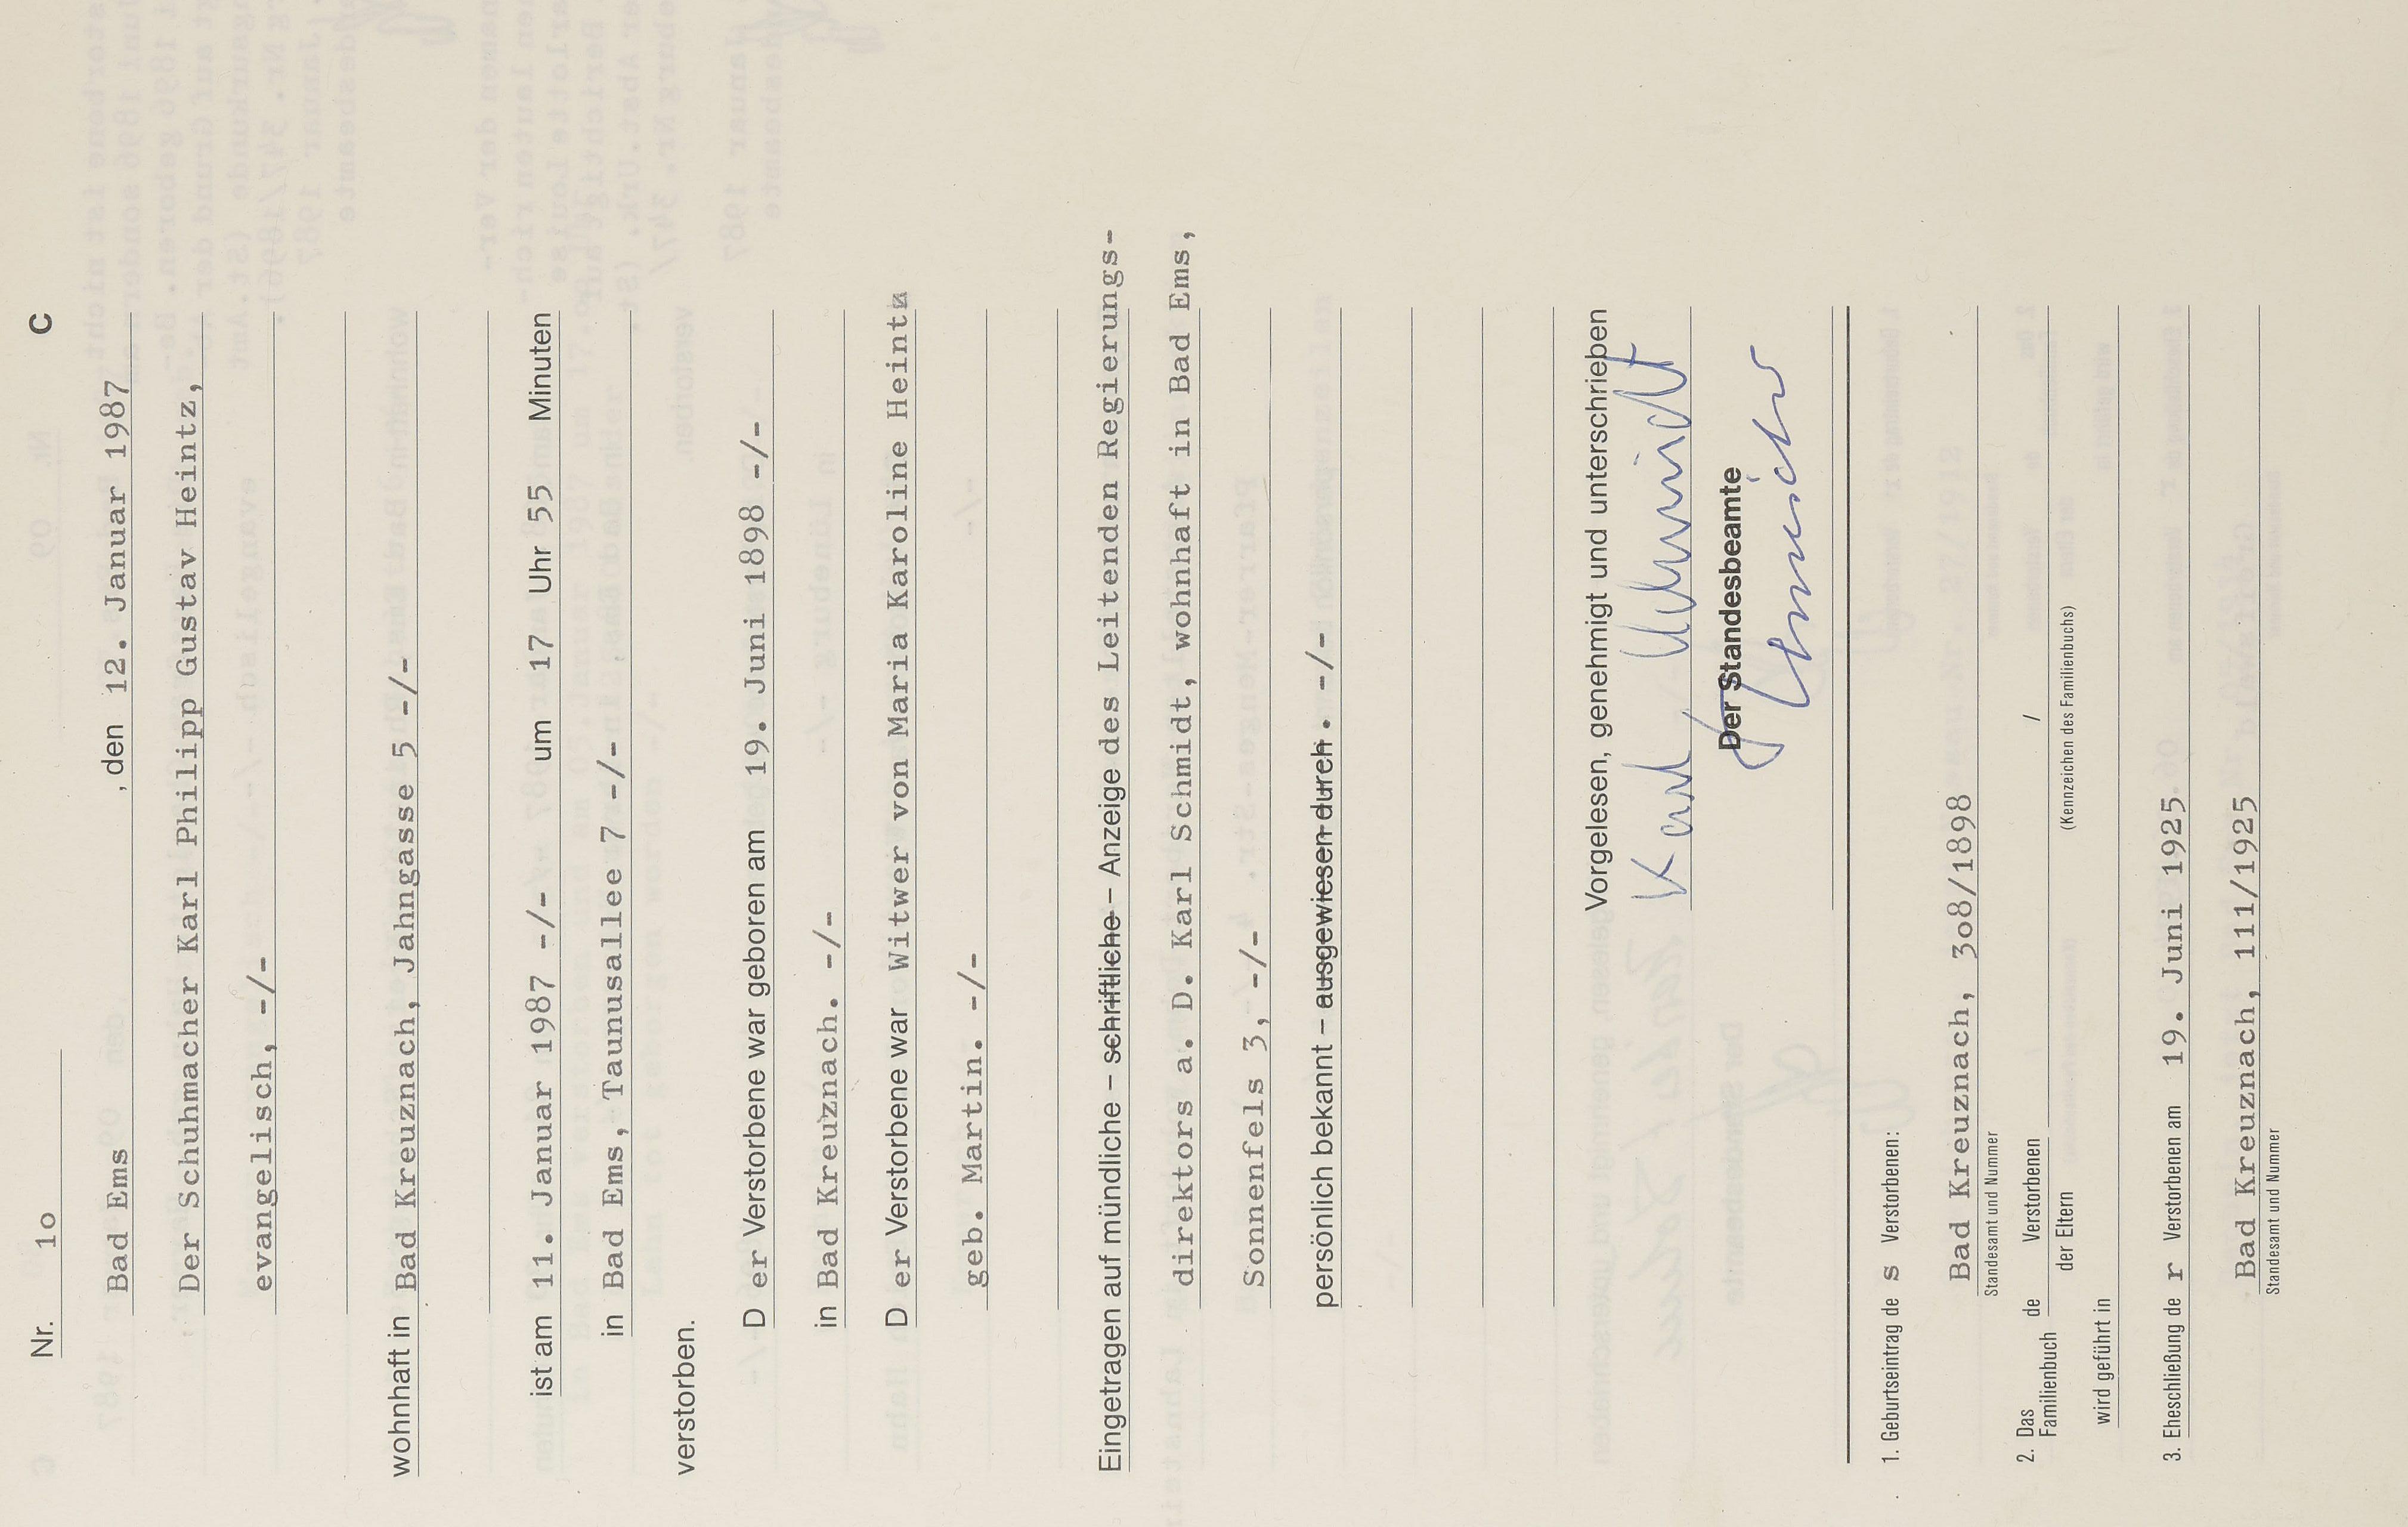 Nr. 1o C
Bad Ems , den 12. Januar 1987
Der Schuhmacher Karl Philipp Gustav Heintz,
evangelisch, -/-
wohnhaft in Bad Kreuznach, Jahngasse 5 -/-
ist am 11. Januar 1987 -/- um 17 Uhr 55 Minuten
in Bad Ems, Taunusallee 7 -/-
verstorben.
D er Verstorbene war geboren am 19. Juni 1898 -/-
in Bad Kreuznach. -/-
D er Verstorbene war Witwer von Maria Karoline Heintz
geb. Martin. -/-
Eingetragen auf mündliche – schriftliche – Anzeige des Leitenden Regierungs-
direktors a. D. Karl Schmidt, wohnhaft in Bad Ems,
Sonnenfels 3, -/-
persönlich bekannt – ausgewiesen durch . -/-
Vorgelesen, genehmigt und unterschrieben
Karl Schmidt
Der Standesbeamte
1. Geburtseintrag de s Verstorbenen:
Bad Kreuznach, 3o8/1898
Standesamt und Nummer
2. Das Familienbuch de Verstorbenen /
der Eltern (Kennzeichen des Familienbuchs)
wird geführt in
3. Eheschließung de r Verstorbenen am 19. Juni 1925
Bad Kreuznach, 111/1925
Standesamt und Nummer